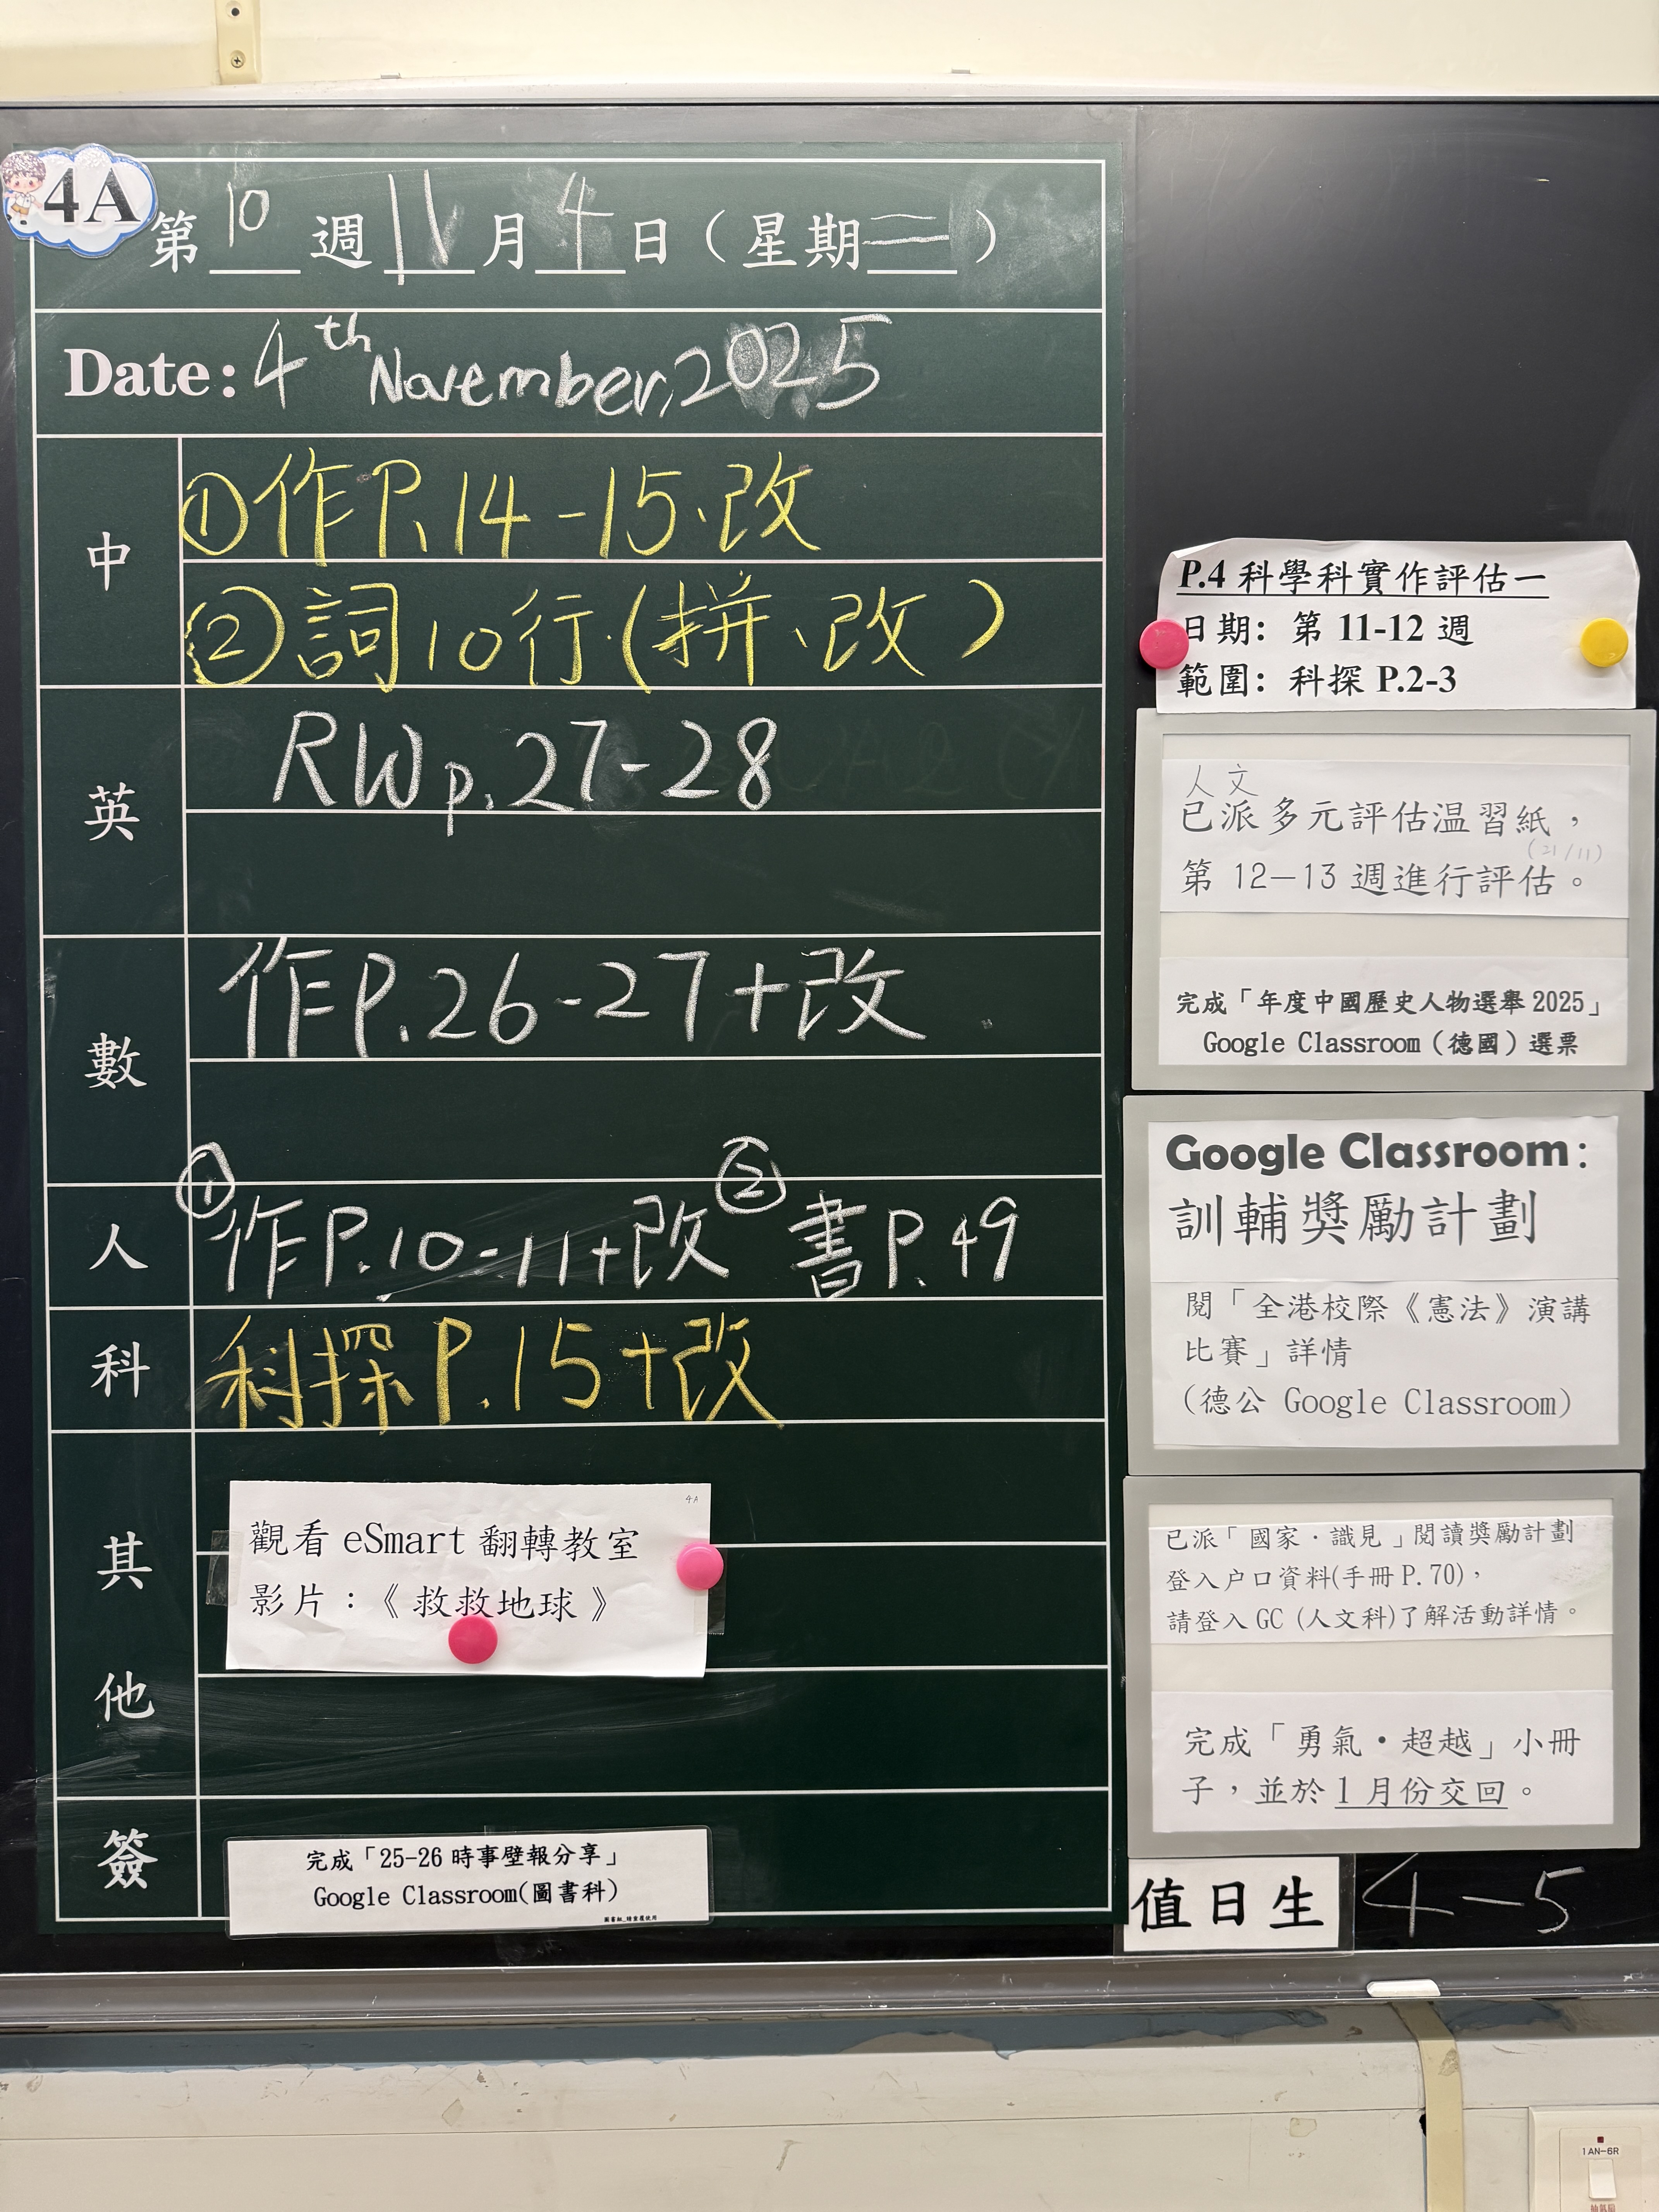 4A
第 10 週 11 月 4 日（星期二）
Date: 4th November, 2025
中
①作P.14-15、改
②詞10行(拼、改)
英
RW p.27-28
數
作P.26-27+改
人
①作P.10-11+改 ②書P.49
科
科探P.15+改
其他
4A
觀看 eSmart 翻轉教室
影片：《救救地球》
簽
完成「25-26 時事壁報分享」
Google Classroom(圖書科)
P.4 科學科實作評估一
日期：第 11-12 週
範圍：科探 P.2-3
人文
已派多元評估温習紙，
(21/11)
第 12—13 週進行評估。
完成「年度中國歷史人物選舉 2025」
Google Classroom（德國）選票
Google Classroom：
訓輔獎勵計劃
閱「全港校際《憲法》演講
比賽」詳情
（德公 Google Classroom）
已派「國家．識見」閱讀獎勵計劃
登入户口資料(手冊 P.70)，
請登入 GC (人文科)了解活動詳情。
完成「勇氣・超越」小冊
子，並於 1 月份交回。
值日生 4-5
1AN-6R